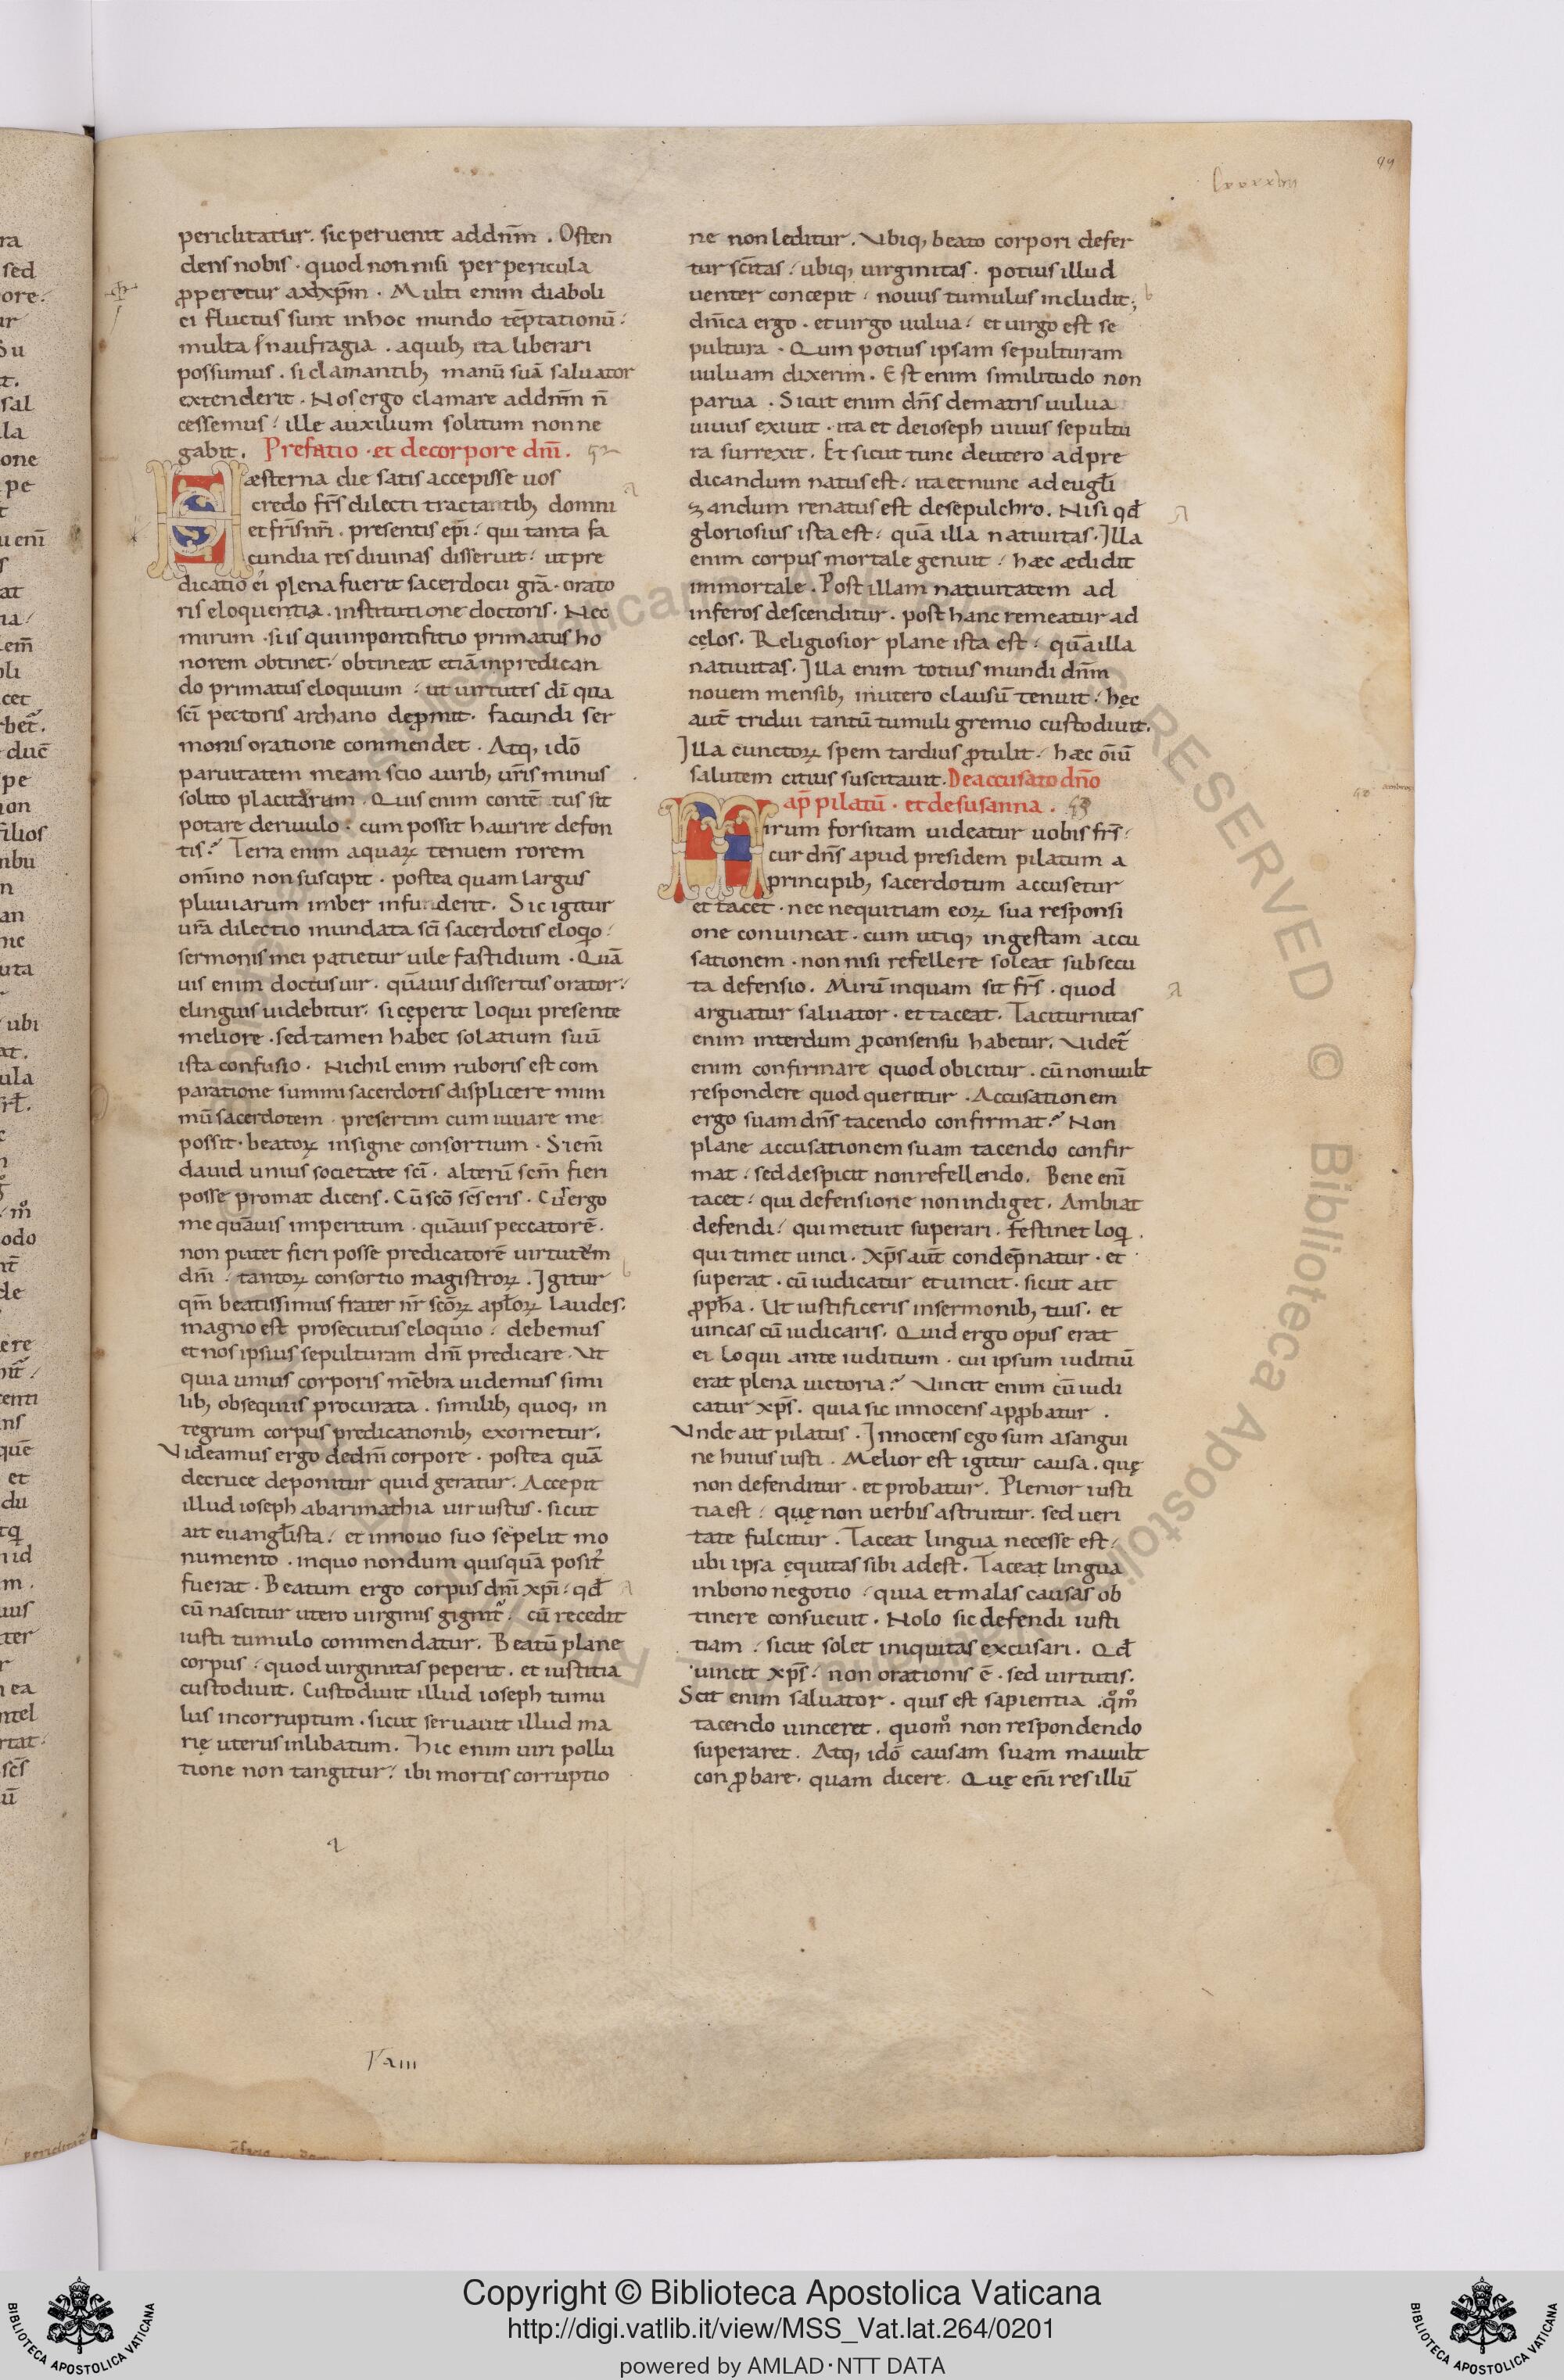 99
lxxxxviiii
periclitatur. sic peruenit ad dnm̄. Osten
dens nobis. quod non nisi per pericula
ꝓperetur ad xp̄m. Multi enim diaboli
ei fluctus sunt in hoc mundo tēptationū.
multa s̄ naufragia. a quib; ita liberari
possumus. si clamantib; manū suā saluator
extenderit. Nos ergo clamare ad dnm̄ n̄
cessemus. ille auxilium solitum non ne
gabit. Prefatio. et de corpore dnī. 52
Hæsterna die satis accepisse uos
credo fr̄s dilecti tractantib; domni
et fr̄is nr̄i. presentis ep̄i. qui tanta fa
cundia res diuinas disseruit. ut pre
dicatio ei plena fuerit sacerdocii gr̄a. orato
ris eloquentia. institutione doctoris. Nec
mirum. si is qui in pontifitio primatus ho
norem obtinet. obtineat etiā in predican
do primatus eloquium. ut uirtutes dī qua
sc̄i pectoris archano dępmit. facundi ser
monis oratione commendet. Atq; idō
paruitatem meam scio aurib; ur̄is minus
solito placitarum. Quis enim contē tus sit
potare de riuulo. cum possit haurire de fon
tis? Terra enim aquaꝝ tenuem rorem
om̄ino non suscipit. postea quam largus
pluuiarum imber infunderit. Sic igitur
ur̄a dilectio inundata sc̄i sacerdotis eloqio.
sermonis mei patietur uile fastidium. Quā
uis enim doctus uir. quāuis dissertus orator.
elinguis uidebitur. si cęperit loqui presente
meliore. sed tamen habet solatium suū
ista confusio. Nichil enim ruboris est com
paratione summi sacerdotis displicere mini
mū sacerdotem. presertim cum iuuare me
possit. beatoꝝ insigne consortium. Si em̄
dauid unius societate sc̄i. alterū sc̄m fieri
posse promat dicens. Cū sc̄o sc̄s eris. Cur ergo
me quāuis imperitum. quāuis peccatorē.
non putet fieri posse predicatorē uirtutem
dnī. tantoꝝ consortio magistroꝝ. Igitur
qm̄ beatissimus frater nr̄ sc̄oꝝ apl̄oꝝ laudes.
magno est prosecutus eloquio. debemus
et nos ipsius sepulturam dnī predicare. Ut
quia unius corporis mēbra uidemus simi
lib; obsequiis procurata. similib; quoq; in
tegrum corpus predicationib; exornetur.
Videamus ergo de dnī corpore. postea quā
de cruce deponitur quid geratur. Accepit
illud ioseph ab arimathia uir iustus. sicut
ait euanglista. et in nouo suo sepelit mo
numento. in quo nondum quisquā posit᷒
fuerat. Beatum ergo corpus dnī xp̄i. qd̄
cū nascitur utero uirginis gignit᷒. cū recedit
iusti tumulo commendatur. Beatū plane
corpus. quod uirginitas peperit. et iustitia
custodiuit. Custodiuit illud ioseph tumu
lus incorruptum. sicut seruauit illud ma
rię uterus inlibatum. Hic enim uiri pollu
tione non tangitur. ibi mortis corruptio
ne non leditur. Vbiq; beato corpori defer
tur sc̄itas. ubiq; uirginitas. potius illud
uenter concepit. nouus tumulus includit;
dnīca ergo. et uirgo uulua. et uirgo est se
pultura. Quin potius ipsam sepulturam
uuluam dixerim. Est enim similitudo non
parua. Sicut enim dn̄s de matris uulua
uiuus exiuit. ita et de ioseph uiuus sepultu
ra surrexit. Et sicut tunc de utero ad pre
dicandum natus est. ita et nunc ad eugl̄i
zandum renatus est de sepulchro. Nisi qd̄
gloriosius ista est. quā illa natiuitas. Illa
enim corpus mortale genuit. hæc ædidit
immortale. Post illam natiuitatem ad
inferos descenditur. post hanc remeatur ad
cęlos. Religiosior plane ista est. quā illa
natiuitas. Illa enim totius mundi dnm̄
nouem mensib; in utero clausū tenuit. hęc
aut̄ tridui tantū tumuli gremio custodiuit.
Illa cunctoꝝ spem tardius ꝓtulit. hæc om̄iū
salutem citius suscitauit. De accusato dn̄o
ap̄ pilatū. et de susanna. 53
Mirum forsitam uideatur uobis fr̄s.
cur dn̄s apud presidem pilatum a
principib; sacerdotum accusetur
et tacet. nec nequitiam eoꝝ sua responsi
one conuincat. cum utiq; ingestam accu
sationem. non nisi refellere soleat subsecu
ta defensio. Mirū inquam sit fr̄s. quod
arguatur saluator. et taceat. Taciturnitas
enim interdum ꝓ consensu habetur. Videt᷒
enim confirmare quod obicitur. cū non uult
respondere quod queritur. Accusationem
ergo suam dn̄s tacendo confirmat? Non
plane accusationem suam tacendo confir
mat. sed despicit non refellendo. Bene em̄
tacet. qui defensione non indiget. Ambiat
defendi. qui metuit superari. festinet loqi.
qui timet uinci. Xp̄s aut̄ condēpnatur. et
superat. cū iudicatur et uincit. sicut ait
ꝓph̄a. Ut iustificeris in sermonib; tuis. et
uincas cū iudicaris. Quid ergo opus erat
ei loqui ante iuditium. cui ipsum iuditiū
erat plena uictoria? Vincit enim cū iudi
catur xp̄s. quia sic innocens apꝓbatur.
Vnde ait pilatus. Innocens ego sum a sangui
ne huius iusti. Melior est igitur causa. quę
non defenditur. et probatur. Plenior iusti
tia est. quę non uerbis astruitur. sed ueri
tate fulcitur. Taceat lingua necesse est.
ubi ipsa ęquitas sibi adest. Taceat lingua
in bono negotio. quia et malas causas ob
tinere consueuit. Nolo sic defendi iusti
tiam. sicut solet iniquitas excusari. Qd̄
uincit xp̄s. non orationis ē. sed uirtutis.
Scit enim saluator. quis est sapientia. qͦmͦ
tacendo uinceret. quomͦ non respondendo
superaret. Atq; idō causam suam mauult
conꝓbare. quam dicere. Quę em̄ res illū
Copyright © Biblioteca Apostolica Vaticana
http://digi.vatlib.it/view/MSS_Vat.lat.264/0201
powered by AMLAD·NTT DATA
BIBLIOTECA APOSTOLICA VATICANA
BIBLIOTECA APOSTOLICA VATICANA